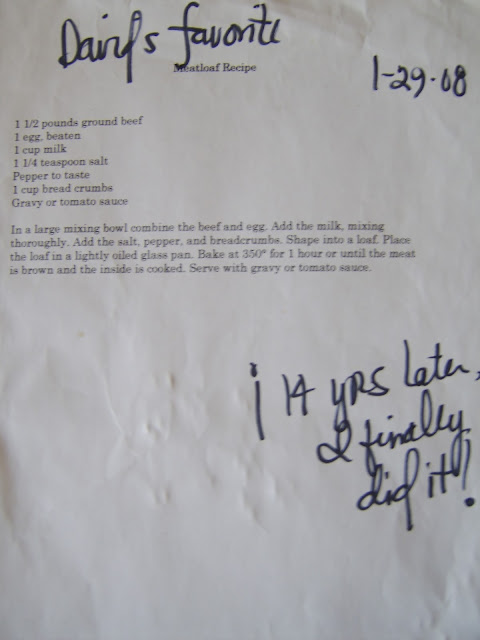 favorite
Meatloaf Recipe
1-29-08
1 1/2 pounds ground beef
1 egg, beaten
1 cup milk
1 1/4 teaspoon salt
Pepper to taste
1 cup bread crumbs
Gravy or tomato sauce
In a large mixing bowl combine the beef and egg. Add the milk, mixing
thoroughly. Add the salt, pepper, and breadcrumbs. Shape into a loaf. Place
the loaf in a lightly oiled glass pan. Bake at 350° for 1 hour or until the meat
is brown and the inside is cooked. Serve with gravy or tomato sauce.
¡ 14 yrs later,
I finally
did it!